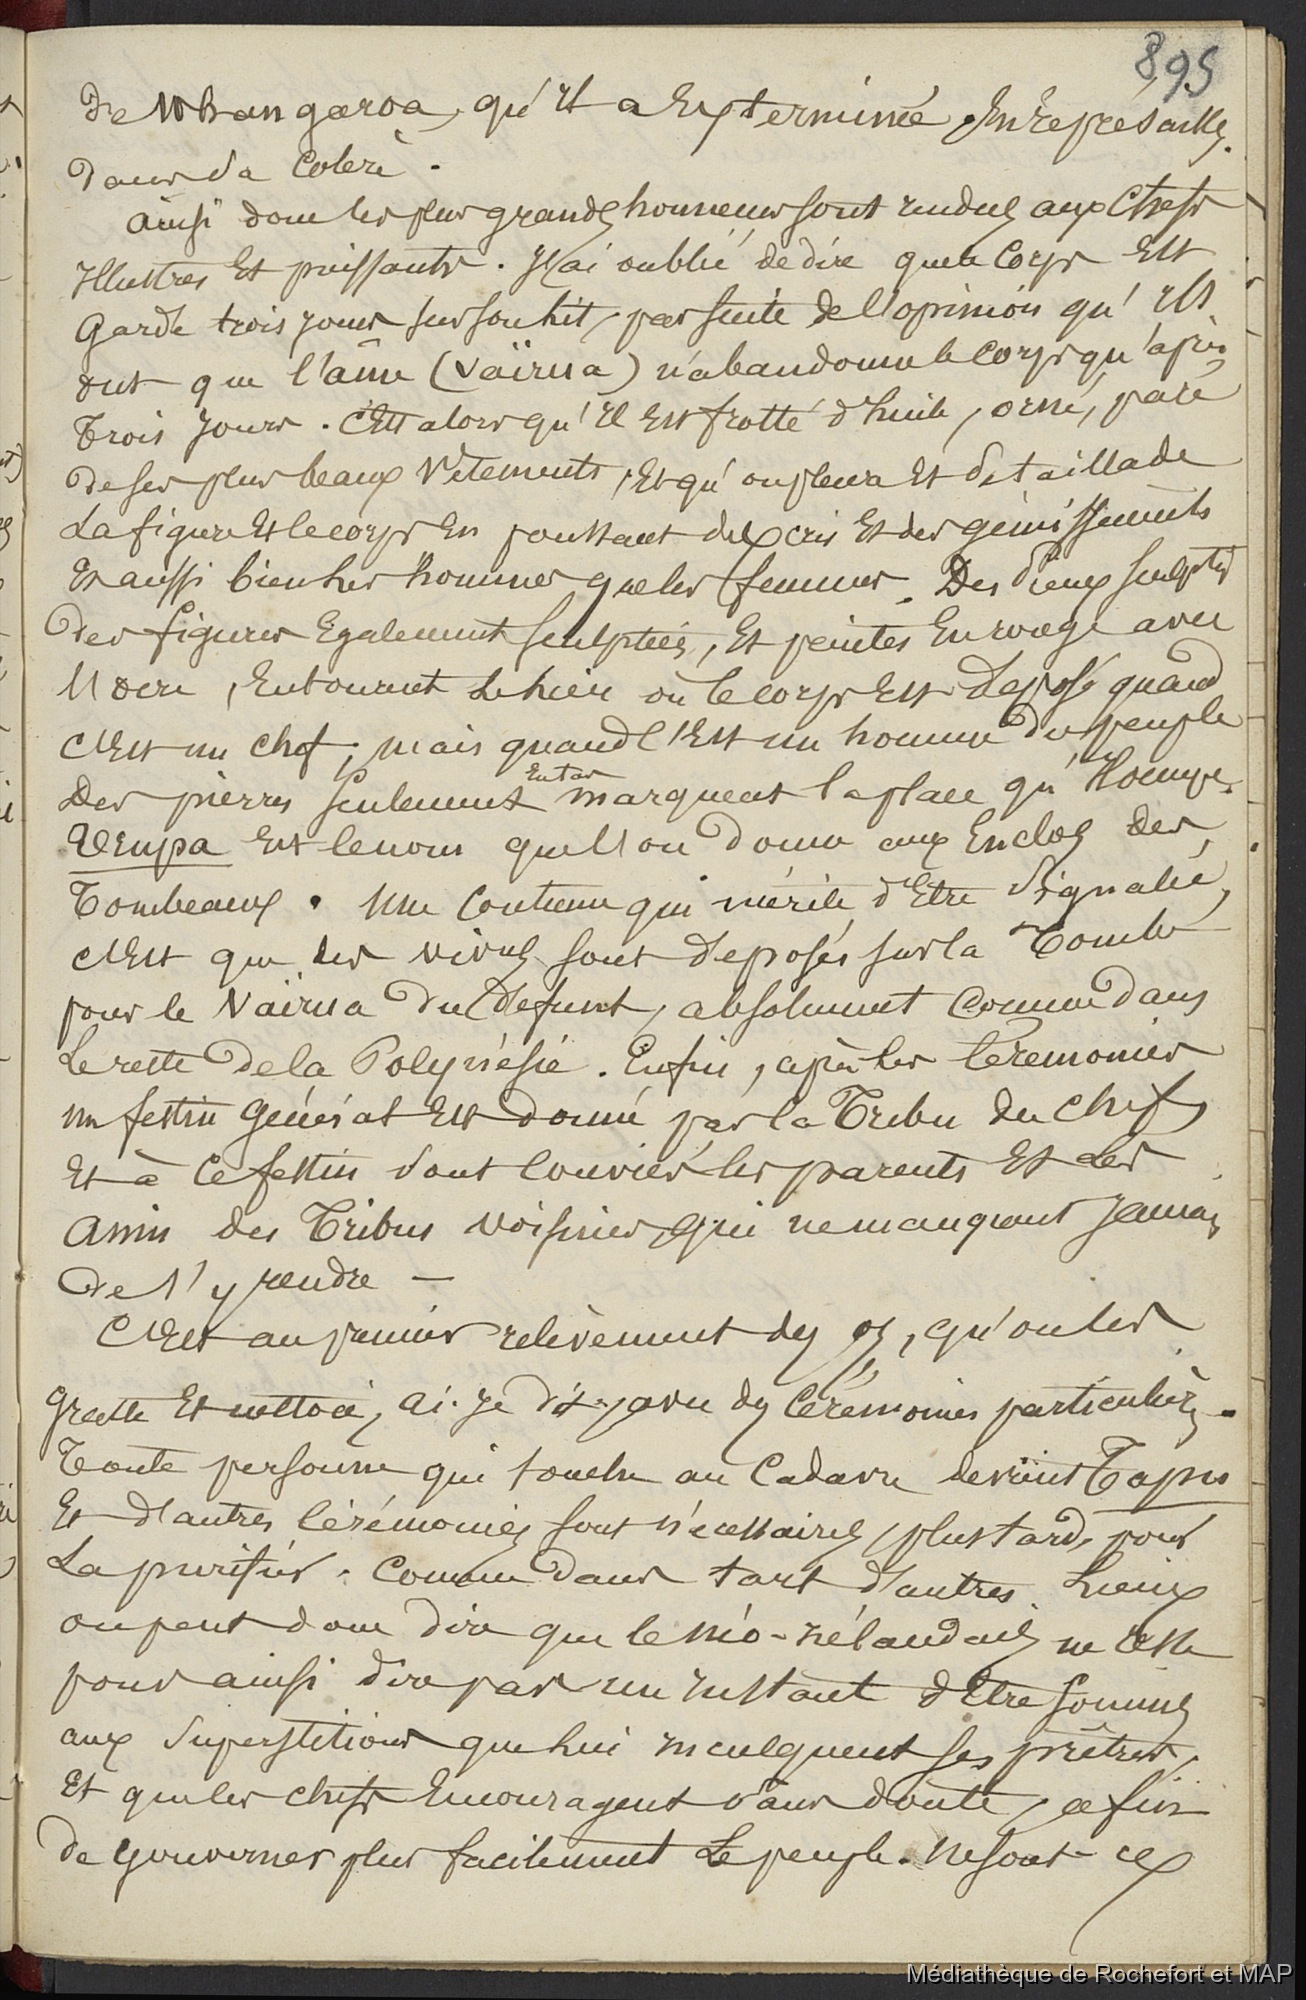 895
de Whangaroa, qu'il a exterminée, en représailles
dans sa colère.
ainsi donc les plus grands honneurs sont rendus aux Chefs
illustres et puissants. J'ai oublié de dire que le corps est
gardé trois jours sur son lit, par suite de l'opinion qu'ils
ont que l'âme (Vaïrua) n'abandonne le corps qu'après
trois jours. C'est alors qu'il est frotté d'huile, orné, paré
de ses plus beaux vêtements, et qu'on pleura et se taillade
la figure et le corps en poussant des cris et des gémissements
et aussi bien les hommes que les femmes. Des Dieux sculptés
des figures également sculptées, et peintes en rouge avec
l'ocre, entourent le lieu où le corps est déposé quand
c'est un chef; mais quand c'est un homme du peuple
des pierres seulement en tas marquent la place qu'il occupe.
Veupa est le nom que l'on donne aux enclos des
Tombeaux. Une coutume qui mérite d'être signalée,
c'est que des vivres sont déposés sur la tombe
pour le Vaïrua du défunt, absolument comme dans
le reste de la Polynésie. Enfin, après les cérémonies
un festin général est donné par la Tribu du chef,
et à ce festin sont conviés les parents et les
amis des Tribus voisines, qui ne manquent jamais
de s'y rendre —
C'est au premier relèvement des os, qu'on les
gratte et nettoie, ai-je dit, avec des cérémonies particulières.
Toute personne qui touche au cadavre devient Tapu
et d'autres cérémonies sont nécessaires, plus tard, pour
la purifier. Comme dans tant d'autres lieux
on peut donc dire que le néo-zélandais ne cesse
pour ainsi dire pas un instant d'être soumis
aux superstitions que lui inculquent ses prêtres,
et que les chefs encouragent sans doute, afin
de gouverner plus facilement le peuple. Ne sont-ce
Médiathèque de Rochefort et MAP